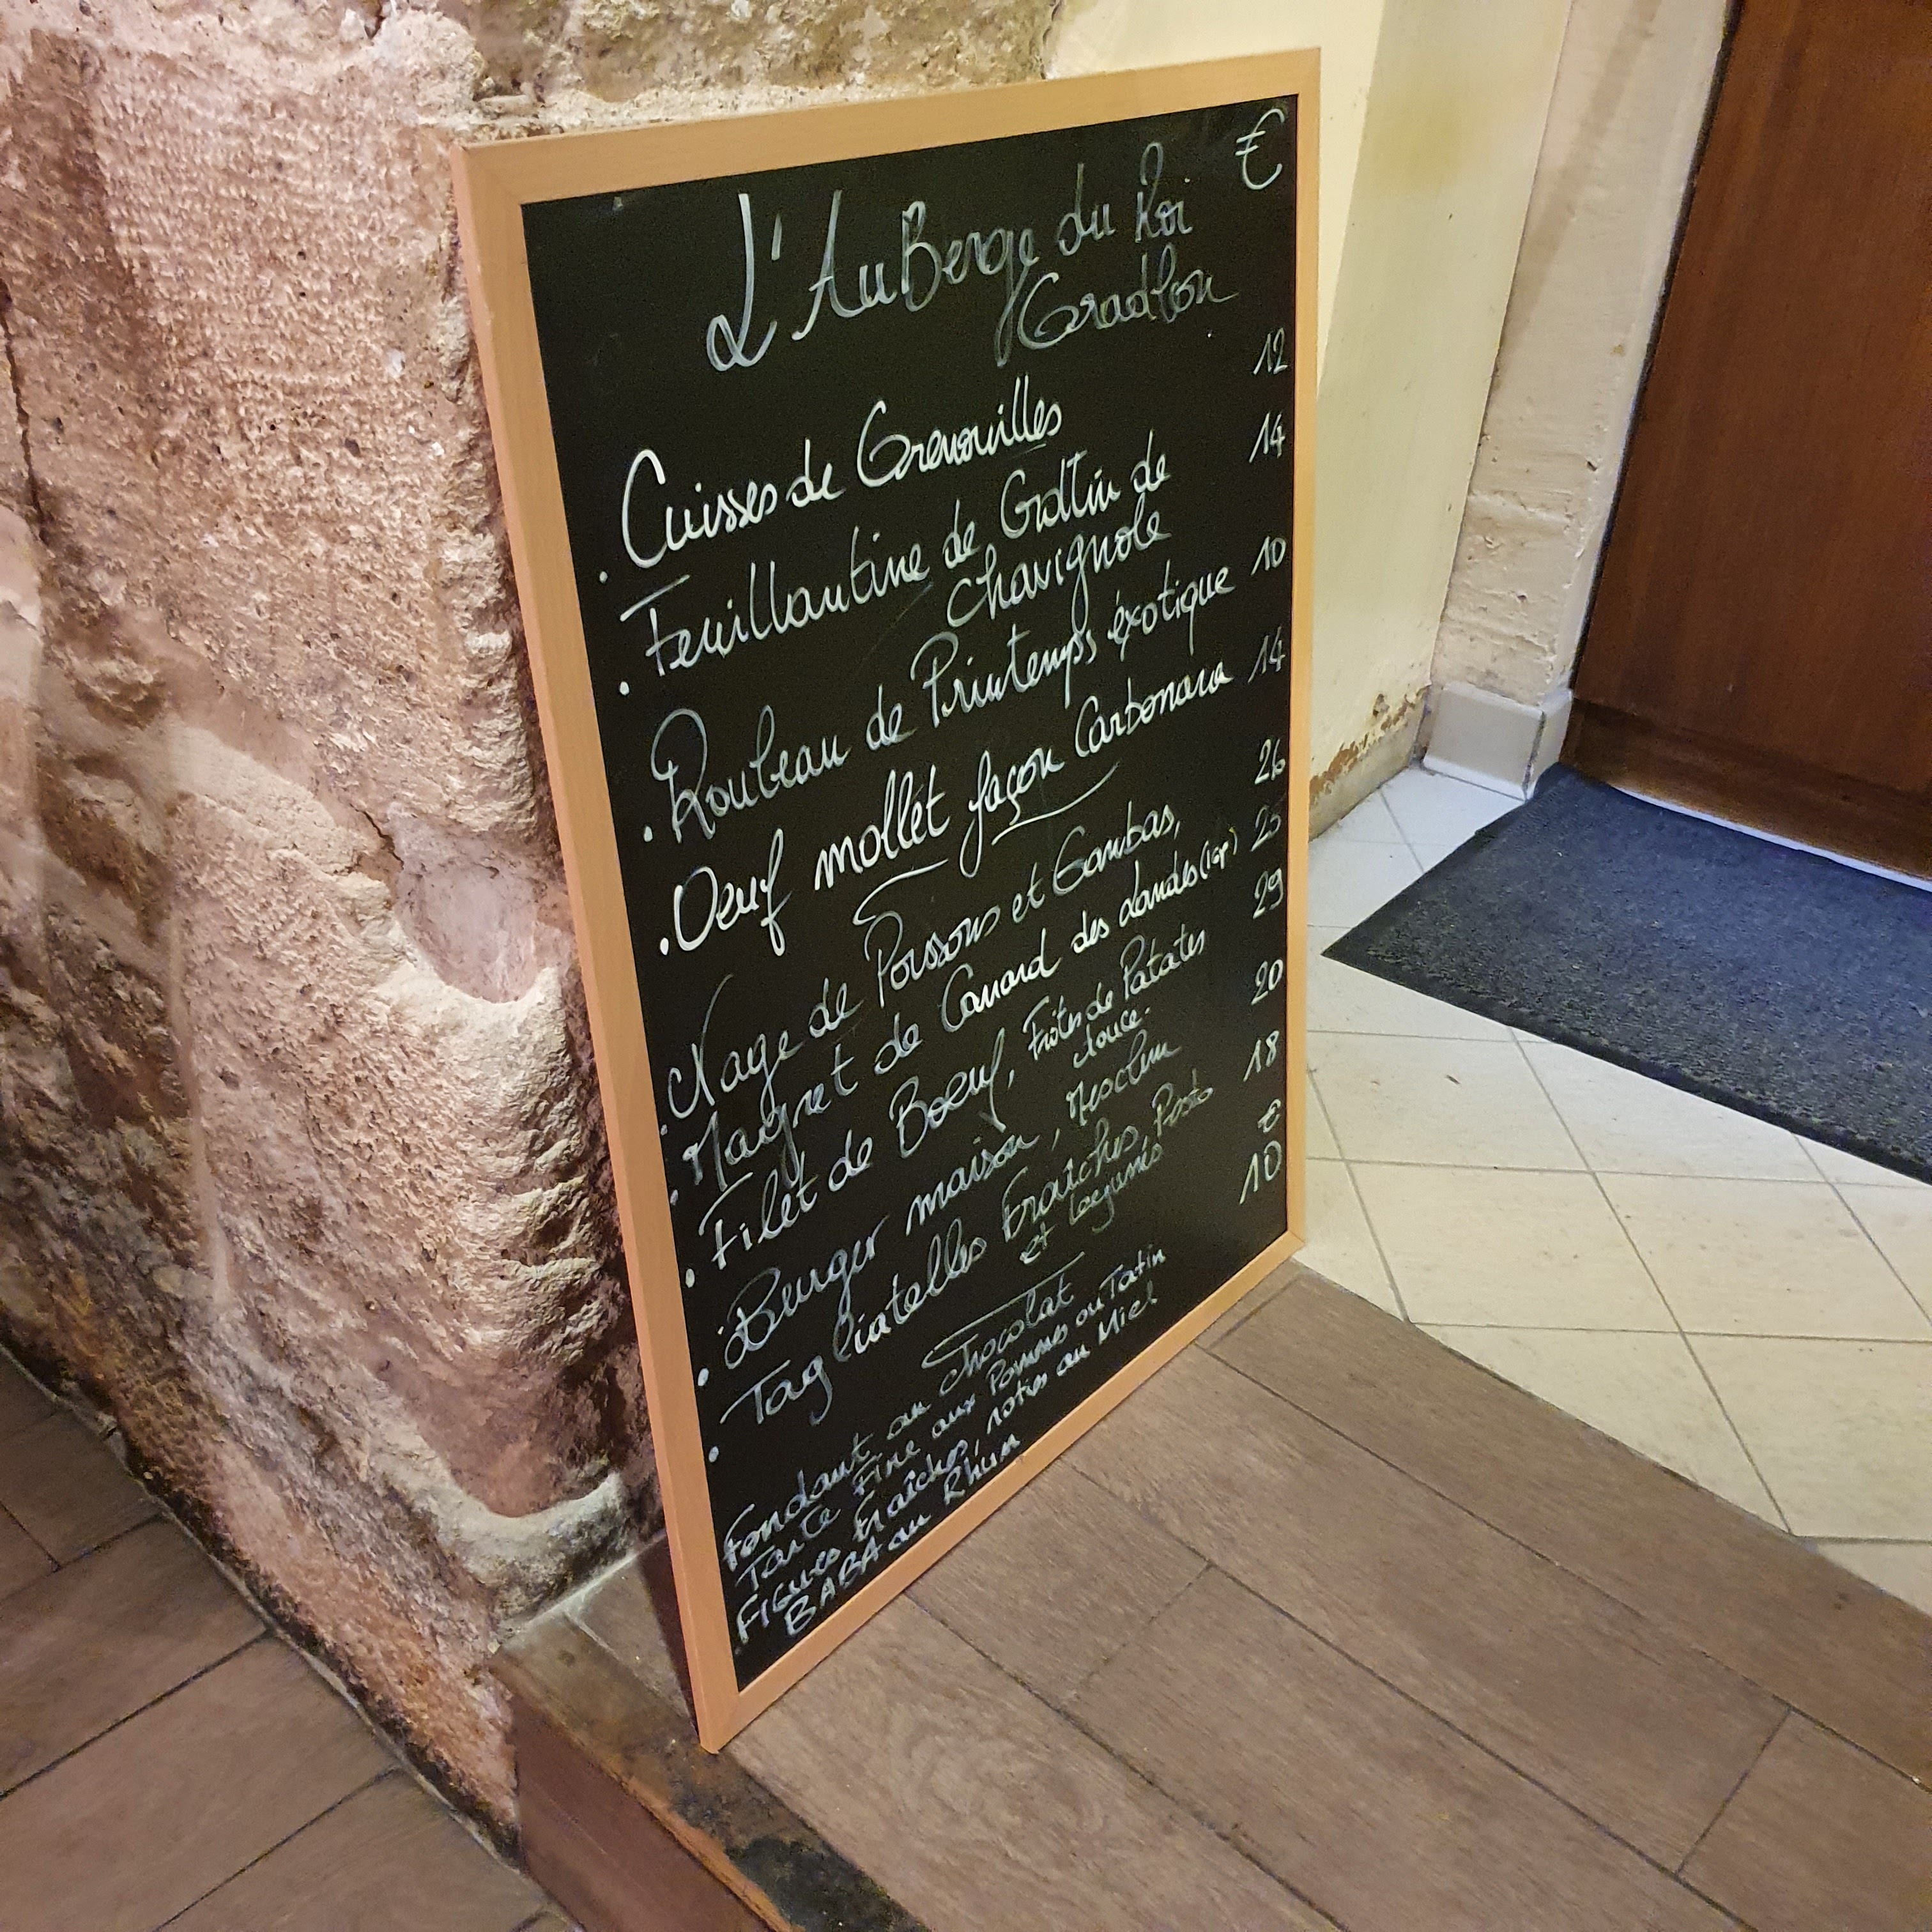 €
L'AuBerge du Roi
Gradlon
. Cuisses de Grenouilles 12
. Feuillantine de Crottin de 14
Chavignole
. Rouleau de Printemps éxotique 10
. Oeuf mollet façon Carbonara 14
. Nage de Poissons et Gambas, 26
. Magret de Canard des Landes (IGP) 25
. Filet de Boeuf, Frites de Patates 29
douce.
. Burger maison, Mesclun 20
. Tagliatelles Fraîches, Pesto 18
et Legumes
€
Fondant au Chocolat 10
Tarte Fine aux Pommes ou Tatin
Figues Fraîches, roties au Miel
BABA au Rhum